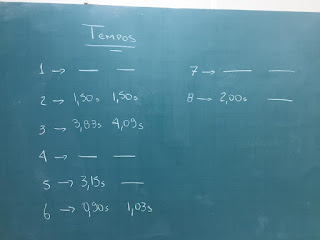 Tempos
1 → — —
2 → 1,50s 1,50s
3 → 3,83s 4,09s
4 → — —
5 → 3,15s —
6 → 0,90s 1,03s
7 → — —
8 → 2,00s —